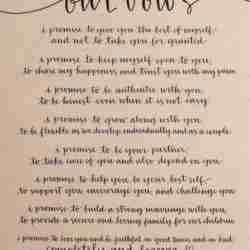 our vows
i promise to give you the best of myself
and not to take you for granted
i promise to keep myself open to you,
to share my happiness and trust you with my pain
i promise to be authentic with you,
to be honest even when it is not easy
i promise to grow along with you,
to be flexible as we develop individually and as a couple
i promise to be your partner,
to take care of you and also depend on you
i promise to help you to your best self,
to support you, encourage you, and challenge you
i promise to build a strong marriage with you,
to provide a secure and loving family for our children
i promise to love you and be faithful in good times and in bad
completely and forever